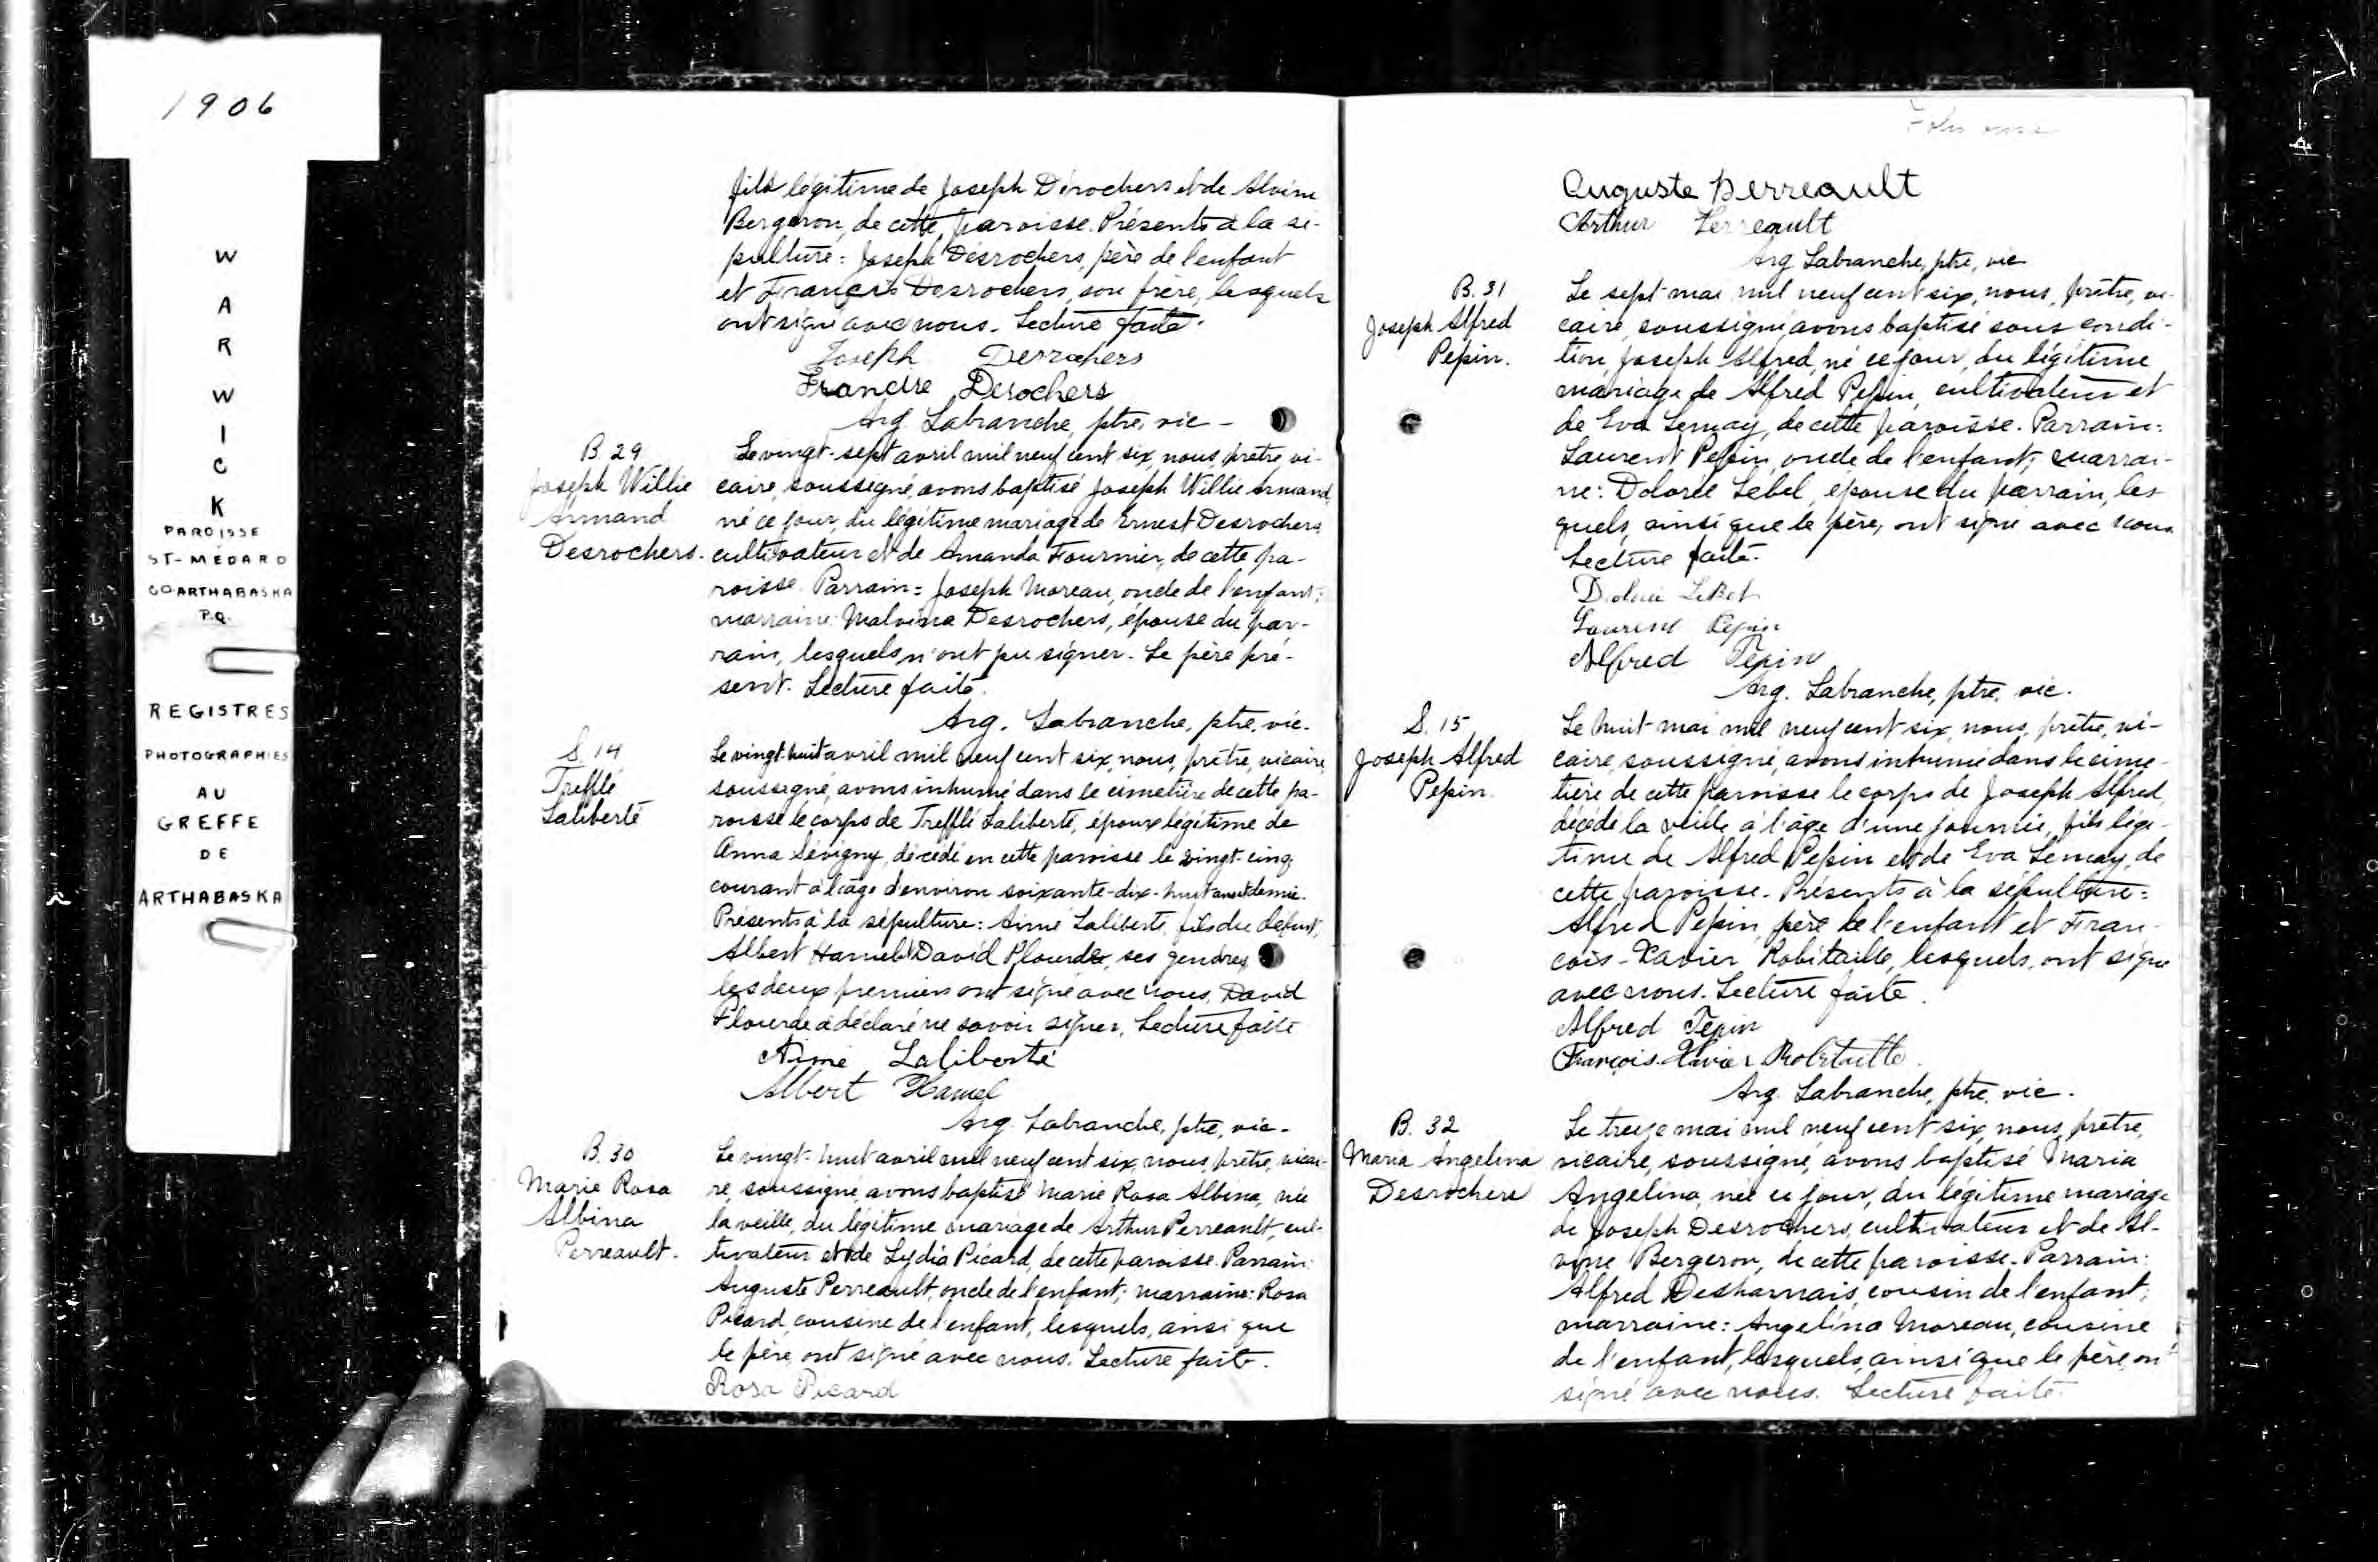 1906
W
A
R
W
I
C
K
PAROISSE
ST-MÉDARD
CO ARTHABASKA
P.Q.
REGISTRES
PHOTOGRAPHIES
AU
GREFFE
DE
ARTHABASKA
fils légitime de Joseph Dérochers et de Alvine
Bergeron, de cette paroisse. Présents à la sé-
pulture: Joseph Desrochers, père de l'enfant
et François Desrochers, son frère, lesquels
ont signé avec nous. Lecture faite.
Joseph Derrochers
Francire Desochers
Arg. Labranche, ptre, vic -
B. 29
Joseph Willie
Armand
Desrochers.
Le vingt-sept avril mil neuf cent six, nous, prêtre, vi-
caire, soussigné, avons baptisé Joseph Willie Armand
né ce jour, du légitime mariage de Ernest Desrochers,
cultivateur et de Amanda Fournier, de cette pa-
roisse. Parrain = Joseph Moreau, oncle de l'enfant;
marraine: Malvina Desrochers, épouse du par-
rain, lesquels n'ont pu signer. Le père pré-
sent. Lecture faite.
Arg. Labranche, ptre, vic.
S. 14
Trefflé
Laliberté
Le vingt-huit avril mil neuf cent six, nous, prêtre, vicaire,
soussigné, avons inhumé dans le cimetière de cette pa-
roisse le corps de Trefflé Laliberté, époux légitime de
Anna Sévigny, décédé en cette paroisse le vingt-cinq
courant à l'âge d'environ soixante-dix-huit ans et demie.
Présents à la sépulture: Aimé Laliberté, fils du défunt,
Albert Hamel et David Plourde, ses gendres
les deux premiers ont signé avec nous, David
Plourde a déclaré ne savoir signer. Lecture faite
Aimé Laliberté
Albert Hamel
Arg. Labranche, ptre, vic.
B. 30
Marie Rosa
Albina
Perreault.
Le vingt-huit avril mil neuf cent six, nous, prêtre, vicai-
re, soussigné, avons baptisé Marie Rosa Albina, née
la veille, du légitime mariage de Arthur Perreault, cul-
tivateur et de Lydia Picard, de cette paroisse. Parrain:
Auguste Perreault, oncle de l'enfant; marraine: Rosa
Picard, cousine de l'enfant, lesquels, ainsi que
le père, ont signé avec nous. Lecture faite.
Rosa Picard
Folio onze
Auguste Perreault
Arthur Perreault
Arg Labranche, ptre, vic
B. 31
Joseph Alfred
Pepin.
Le sept mai mil neuf cent six, nous, prêtre, vi-
caire, soussigné, avons baptisé sous condi-
tion, Joseph Alfred, né ce jour, du légitime
mariage de Alfred Pepin, cultivateur et
de Eva Lemay, de cette paroisse. Parrain:
Laurent Pepin, oncle de l'enfant; marrai-
ne: Dolorée Lebel, épouse du parrain, les-
quels, ainsi que le père, ont signé avec nous.
Lecture faite.
LeBel
Laurent Pepin
Alfred Pepin
Arg. Labranche, ptre, vic.
S. 15
Joseph Alfred
Pepin.
Le huit mai mil neuf cent six, nous, prêtre, vi-
caire, soussigné, avons inhumé dans le cime-
tière de cette paroisse le corps de Joseph Alfred,
décédé la veille à l'âge d'une journée, fils légi-
time de Alfred Pepin et de Eva Lemay, de
cette paroisse. Présents à la sépulture:
Alfred Pepin, père de l'enfant et Fran-
çois-Xavier Robitaille, lesquels, ont signé
avec nous. Lecture faite.
Alfred Pepin
François-Xavier Robitaille.
Arg. Labranche, ptre, vic.
B. 32
Maria Angelina
Desrochers
Le treize mai mil neuf cent six, nous, prêtre,
vicaire, soussigné, avons baptisé Maria
Angelina, née ce jour, du légitime mariage
de Joseph Desrochers, cultivateur et de Al-
vine Bergeron, de cette paroisse. Parrain:
Alfred Desharnais, cousin de l'enfant;
marraine: Angelina Moreau, cousine
de l'enfant, lesquels, ainsi que le père, ont
signé avec nous. Lecture faite.